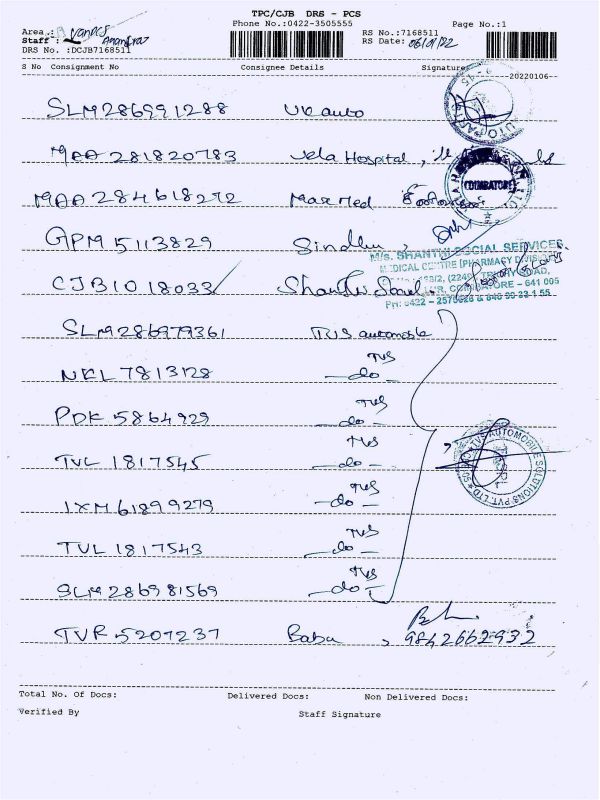 TPC/CJB DRS - PCS
Phone No.:0422-3505555
Page No.:1
Area :
Staff :
RS No.:7168511
DRS No. :DCJB7168511
RS Date: 06/01/22
S No Consignment No Consignee Details Signature
20220106
SLM286991288 UK auto
MAA 281820783 Vela Hospital,
MAA 284618272 Marmed
COIMBATORE
GPM 5113829 Sindhu,
M/s. SHANTHI SOCIAL SERVICES
MEDICAL CENTRE (PHARMACY DIVISION)
CJB1018033 Shanthi
ROAD,
COIMBATORE - 641 005
SLM286979361 TVS automobile
NKL 7813128 TVS -do-
PDK 5864929 TVS -do-
TVL 1817545 TVS -do-
TVS AUTOMOBILE SOLUTIONS PVT. LTD
IXM 61899279 TVS -do-
TVL 1817543 TVS -do-
SLM 286981569 TVS -do-
TVR 5207237 Babu, 9842662932
Total No. Of Docs: Delivered Docs: Non Delivered Docs:
Verified By Staff Signature